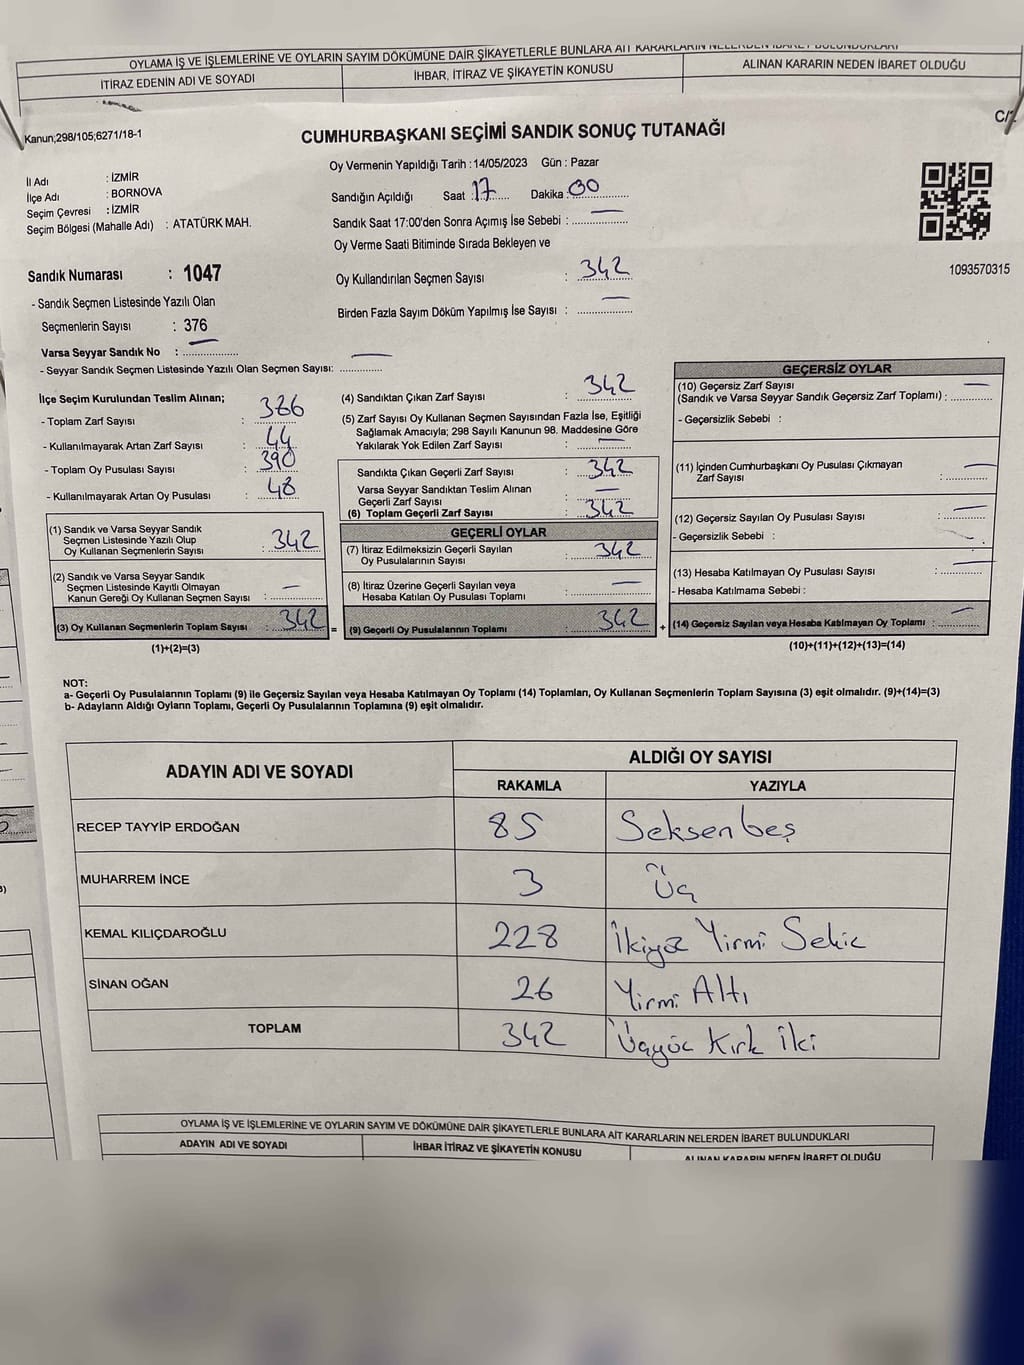 OYLAMA İŞ VE İŞLEMLERİNE VE OYLARIN SAYIM DÖKÜMÜNE DAİR ŞİKAYETLERLE BUNLARA AİT KARARLARIN NELERDEN İBARET BULUNDUKLARI
İTİRAZ EDENİN ADI VE SOYADI
İHBAR, İTİRAZ VE ŞİKAYETİN KONUSU
ALINAN KARARIN NEDEN İBARET OLDUĞU
Kanun;298/105;6271/18-1
CUMHURBAŞKANI SEÇİMİ SANDIK SONUÇ TUTANAĞI
Oy Vermenin Yapıldığı Tarih :14/05/2023 Gün : Pazar
İl Adı : İZMİR
İlçe Adı : BORNOVA
Seçim Çevresi : İZMİR
Seçim Bölgesi (Mahalle Adı) : ATATÜRK MAH.
Sandığın Açıldığı Saat 17 Dakika :00
Sandık Saat 17:00'den Sonra Açımış İse Sebebi :
Oy Verme Saati Bitiminde Sırada Bekleyen ve
Oy Kullandırılan Seçmen Sayısı : 342
Birden Fazla Sayım Döküm Yapılmış İse Sayısı :
1093570315
Sandık Numarası : 1047
- Sandık Seçmen Listesinde Yazılı Olan
Seçmenlerin Sayısı : 376
Varsa Seyyar Sandık No :
- Seyyar Sandık Seçmen Listesinde Yazılı Olan Seçmen Sayısı:
İlçe Seçim Kurulundan Teslim Alınan;
- Toplam Zarf Sayısı : 386
- Kullanılmayarak Artan Zarf Sayısı : 44
- Toplam Oy Pusulası Sayısı : 390
- Kullanılmayarak Artan Oy Pusulası : 48
(1) Sandık ve Varsa Seyyar Sandık
Seçmen Listesinde Yazılı Olup
Oy Kullanan Seçmenlerin Sayısı : 342
(2) Sandık ve Varsa Seyyar Sandık
Seçmen Listesinde Kayıtlı Olmayan
Kanun Gereği Oy Kullanan Seçmen Sayısı :
(3) Oy Kullanan Seçmenlerin Toplam Sayısı : 342
(1)+(2)=(3)
(4) Sandıktan Çıkan Zarf Sayısı : 342
(5) Zarf Sayısı Oy Kullanan Seçmen Sayısından Fazla İse, Eşitliği
Sağlamak Amacıyla; 298 Sayılı Kanunun 98. Maddesine Göre
Yakılarak Yok Edilen Zarf Sayısı :
Sandıkta Çıkan Geçerli Zarf Sayısı : 342
Varsa Seyyar Sandıktan Teslim Alınan
Geçerli Zarf Sayısı :
(6) Toplam Geçerli Zarf Sayısı : 342
GEÇERLİ OYLAR
(7) İtiraz Edilmeksizin Geçerli Sayılan
Oy Pusulalarının Sayısı : 342
(8) İtiraz Üzerine Geçerli Sayılan veya
Hesaba Katılan Oy Pusulası Toplamı :
= (9) Geçerli Oy Pusulalarının Toplamı : 342 +
GEÇERSİZ OYLAR
(10) Geçersiz Zarf Sayısı
(Sandık ve Varsa Seyyar Sandık Geçersiz Zarf Toplamı) :
- Geçersizlik Sebebi :
(11) İçinden Cumhurbaşkanı Oy Pusulası Çıkmayan
Zarf Sayısı :
(12) Geçersiz Sayılan Oy Pusulası Sayısı :
- Geçersizlik Sebebi :
(13) Hesaba Katılmayan Oy Pusulası Sayısı :
- Hesaba Katılmama Sebebi :
(14) Geçersiz Sayılan veya Hesaba Katılmayan Oy Toplamı :
(10)+(11)+(12)+(13)=(14)
NOT:
a- Geçerli Oy Pusulalarının Toplamı (9) ile Geçersiz Sayılan veya Hesaba Katılmayan Oy Toplamı (14) Toplamları, Oy Kullanan Seçmenlerin Toplam Sayısına (3) eşit olmalıdır. (9)+(14)=(3)
b- Adayların Aldığı Oyların Toplamı, Geçerli Oy Pusulalarının Toplamına (9) eşit olmalıdır.
ADAYIN ADI VE SOYADI
ALDIĞI OY SAYISI
RAKAMLA YAZIYLA
RECEP TAYYİP ERDOĞAN 85 Seksen beş
MUHARREM İNCE 3 Üç
KEMAL KILIÇDAROĞLU 228 İkiyüz Yirmi Sekiz
SİNAN OĞAN 26 Yirmi Altı
TOPLAM 342 Üçyüz Kırk İki
OYLAMA İŞ VE İŞLEMLERİNE VE OYLARIN SAYIM VE DÖKÜMÜNE DAİR ŞİKAYETLERLE BUNLARA AİT KARARLARIN NELERDEN İBARET BULUNDUKLARI
ADAYIN ADI VE SOYADI
İHBAR İTİRAZ VE ŞİKAYETİN KONUSU
ALINAN KARARIN NEDEN İBARET OLDUĞU